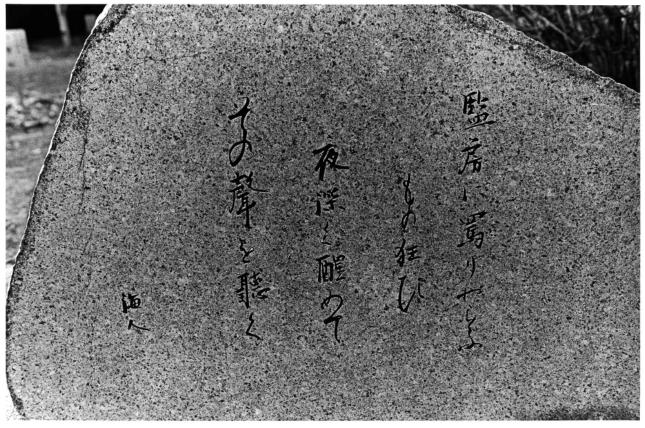 監房に罵りわらふ
もの狂ひ
夜深く醒めて
その聲を聴く
海人